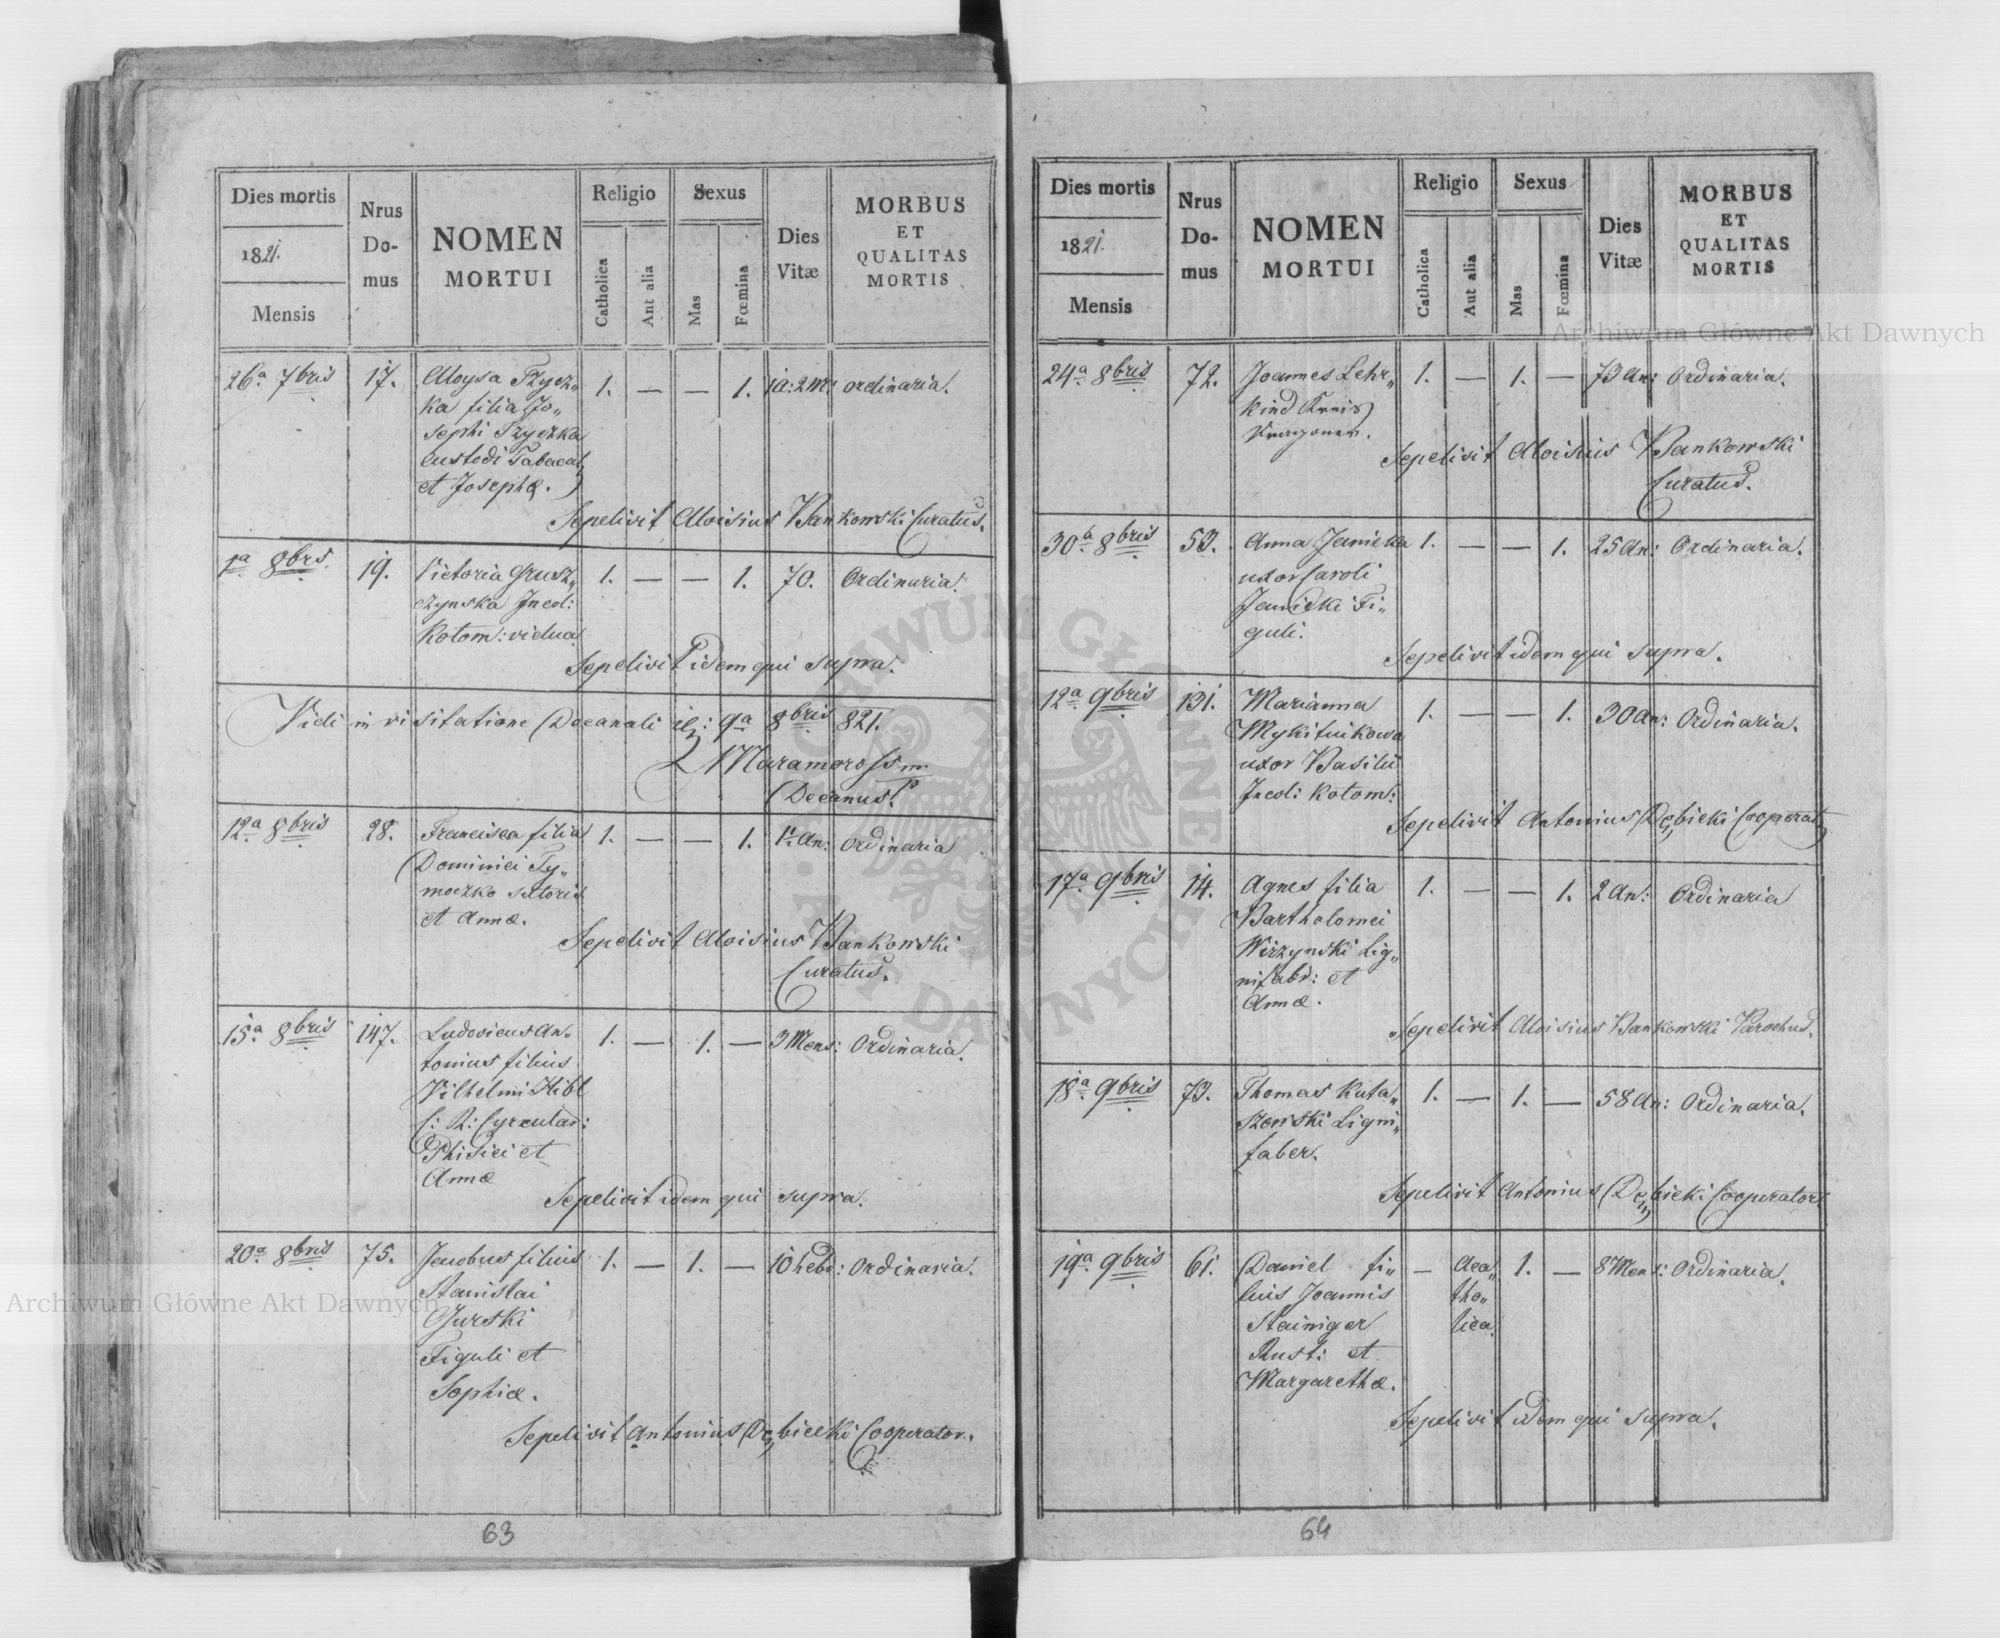 Dies mortis
1821.
Mensis
Nrus
Do-
mus
NOMEN
MORTUI
Religio
Catholica
Aut alia
Sexus
Mas
Fœmina
Dies
Vitæ
MORBUS
ET
QUALITAS
MORTIS
26a 7bris 17. Aloysa Tzycz„ 1. — — 1. 1a: 2M: ordinaria.
ka filia Jo„
sephi Tzyczka
custodi Tabacal
et Josephæ.
Sepelivit Aloisius Bankowski Curatus.
1a 8bris. 19. Victoria Grusz„ 1. — — 1. 70. Ordinaria.
czynska Incol:
Kotom: vidua
Sepelivit idem qui supra.
Vidi in visitatione Decanali 9a 8bris 821.
Maramoross
Decanus.
12a 8bris 28. Francisca filia 1. — — 1. 1 An: Ordinaria
Dominici Ty„
moczko sutoris
et Annæ.
Sepelivit Aloisius Bankowski
Curatus.
15a 8bris 147. Ludovicus An„ 1. — 1. — 3 Mens: Ordinaria.
tonius filius
Vilhelmi Hibl
C: R: Cyrcular:
Phisici et
Annæ
Sepelivit idem qui supra.
20a 8bris 75. Jacobus filius 1. — 1. — 10 hebd: Ordinaria.
Stanislai
Gurski
Figuli et
Sophiæ.
Sepelivit Antonius Dębicki Cooperator.
63
Dies mortis
1821.
Mensis
Nrus
Do-
mus
NOMEN
MORTUI
Religio
Catholica
Aut alia
Sexus
Mas
Fœmina
Dies
Vitæ
MORBUS
ET
QUALITAS
MORTIS
24a 8bris 72. Joannes Lehr„ 1. — 1. — 73 An: Ordinaria.
kind Kreis
Dragoner.
Sepelivit Aloisius Bankowski
Curatus.
30a 8bris 53. Anna Janicka 1. — — 1. 25 An: Ordinaria.
uxor Caroli
Janicki Fi„
guli.
Sepelivit idem qui supra.
12a 9bris 131. Marianna 1. — — 1. 30 An: Ordinaria.
Mykitiukowa
uxor Basilii
Incol: Kotom:
Sepelivit Antonius Dębicki Cooperat
17a 9bris 14. Agnes filia 1. — — 1. 2 An: Ordinaria
Bartholomei
Wirzynski Lig„
nifabr: et
Annæ.
Sepelivit Aloisius Bankowski Parochus.
18a 9bris 73. Thomas Kuta„ 1. — 1. — 58 An: Ordinaria.
szewski Ligni„
faber.
Sepelivit Antonius Dębicki Cooperator
19a 9bris 61. Daniel fi„ — Aca„ 1. — 8 Mens: Ordinaria.
lius Joannis tho„
Stainiger lica.
Rust: et
Margarethæ.
Sepelivit idem qui supra.
64
Archiwum Główne Akt Dawnych
Archiwum Główne Akt Dawnych
ARCHIWUM GŁÓWNE AKT DAWNYCH